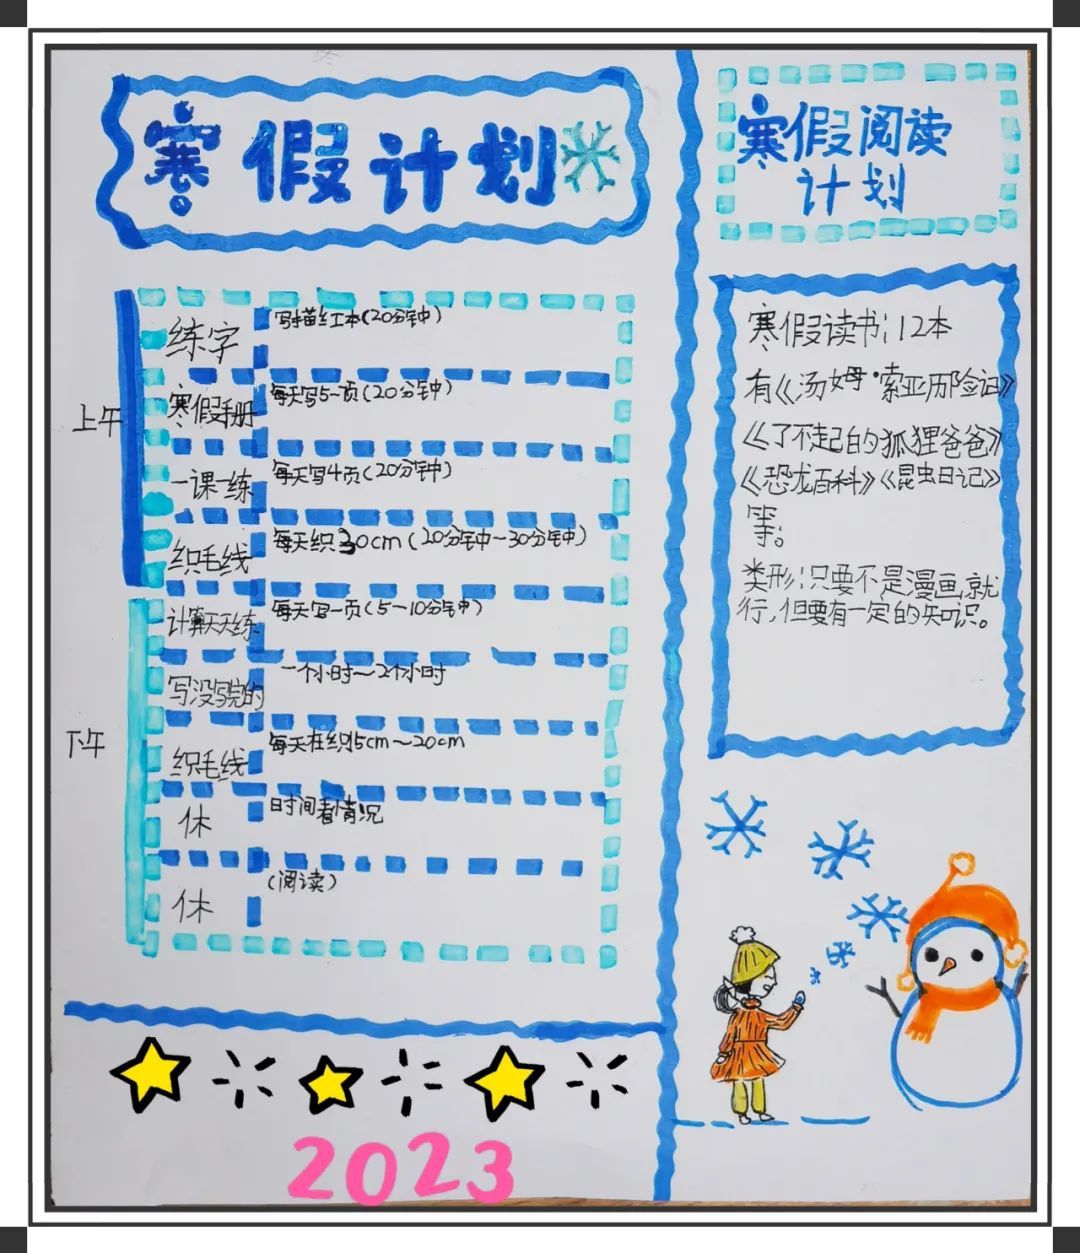 寒假计划
上午
练字 写描红本(20分钟)
寒假手册 每天写5~页(20分钟)
一课一练 每天写4页(20分钟)
织毛线 每天织30cm(20分钟~30分钟)
下午
计算天天练 每天写一页(5~10分钟)
写没完的 一个小时~2个小时
织毛线 每天在织15cm~20cm
休 时间看情况
休 (阅读)
2023
寒假阅读
计划
寒假读书:12本
有《汤姆·索亚历险记》
《了不起的狐狸爸爸》
《恐龙百科》《昆虫日记》
等。
类形:只要不是漫画,就
行,但要有一定的知识。